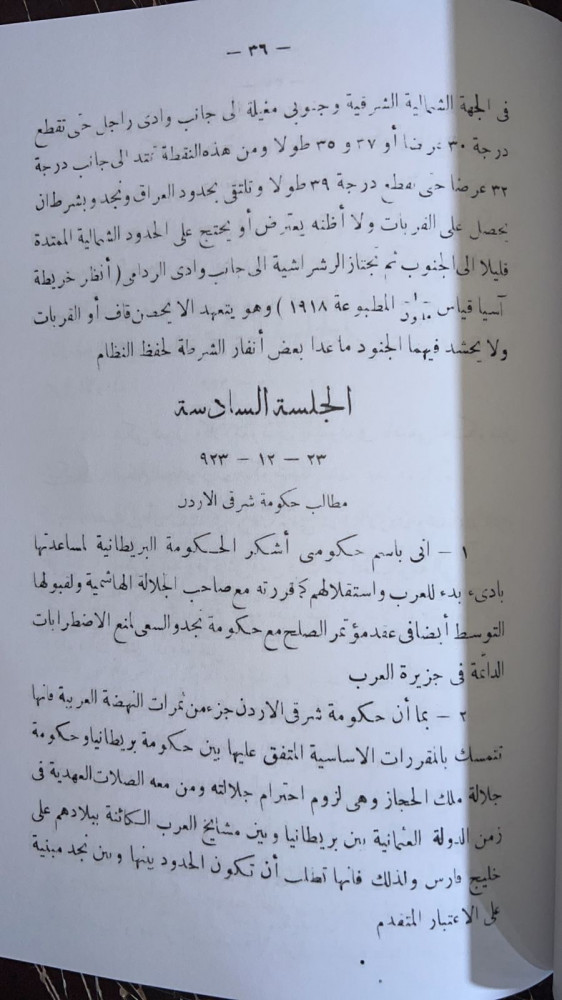 — ٣٦ —
فى الجهة الشمالية الشرقية وجنوبى مغيلة الى جانب وادى راجل حتى تقطع
درجة ٣٠ عرضا أو ٣٧ و ٣٥ طولا ومن هذه النقطة تمتد الى جانب درجة
٣٢ عرضا حتى تقطع درجة ٣٩ طولا وتلتقى بحدود العراق ونجد وبشرط ان
يحصل على القريات ولا أظنه يعترض أو يحتج على الحدود الشمالية الممتدة
قليلا الى الجنوب ثم تجتاز الرشراشية الى جانب وادى الردامى ( أنظر خريطة
آسيا قياس المطبوعة ١٩١٨ ) وهو يتعهد الا يحصن قاف أو القريات
ولا يحشد فيهما الجنود ما عدا بعض أنفار الشرطة لحفظ النظام
الجلسة السادسة
٢٣ — ١٢ — ٩٢٣
مطالب حكومة شرقى الاردن
١ — انى باسم حكومتى أشكر الحكومة البريطانية لمساعدتها
بادىء بدء للعرب واستقلالهم كما قررته مع صاحب الجلالة الهاشمية ولقبولها
التوسط أيضا فى عقد مؤتمر الصلح مع حكومة نجد والسعى لمنع الاضطرابات
الدائمة فى جزيرة العرب
٢ — بما أن حكومة شرقى الاردن جزء من ثمرات النهضة العربية فانها
تتمسك بالمقررات الاساسية المتفق عليها بين حكومة بريطانيا وحكومة
جلالة ملك الحجاز وهى لزوم احترام جلالته ومن معه الصلات العهدية فى
زمن الدولة العثمانية بين بريطانيا وبين مشايخ العرب الكائنة ببلادهم على
خليج فارس ولذلك فانها تطلب أن تكون الحدود بينها وبين نجد مبنية
على الاعتبار المتقدم